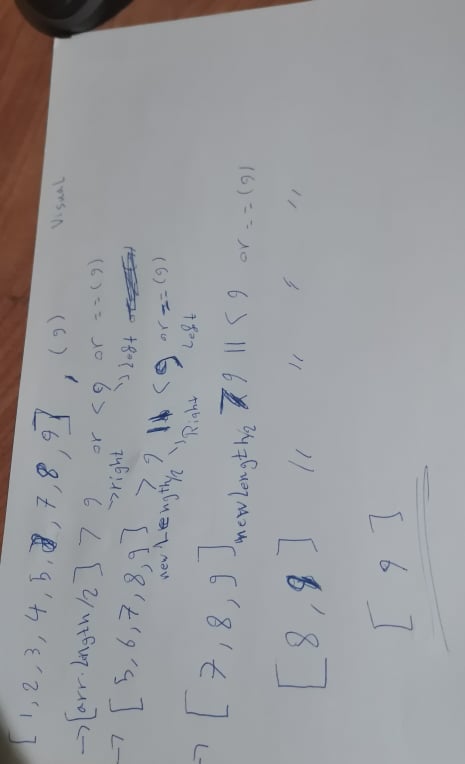 Visual
[1,2,3,4,5, , 7,8,9] , (9)
→[arr.length/2] > 9 or < 9 or ==(9)
→right ↘left or
→ [5,6,7,8,9] > 9 || < 9 or ==(9)
newLength/2 Right Left
→ [7,8,9] newLength/2 > 9 || < 9 or ==(9)
[8,9] " " " "
[9]